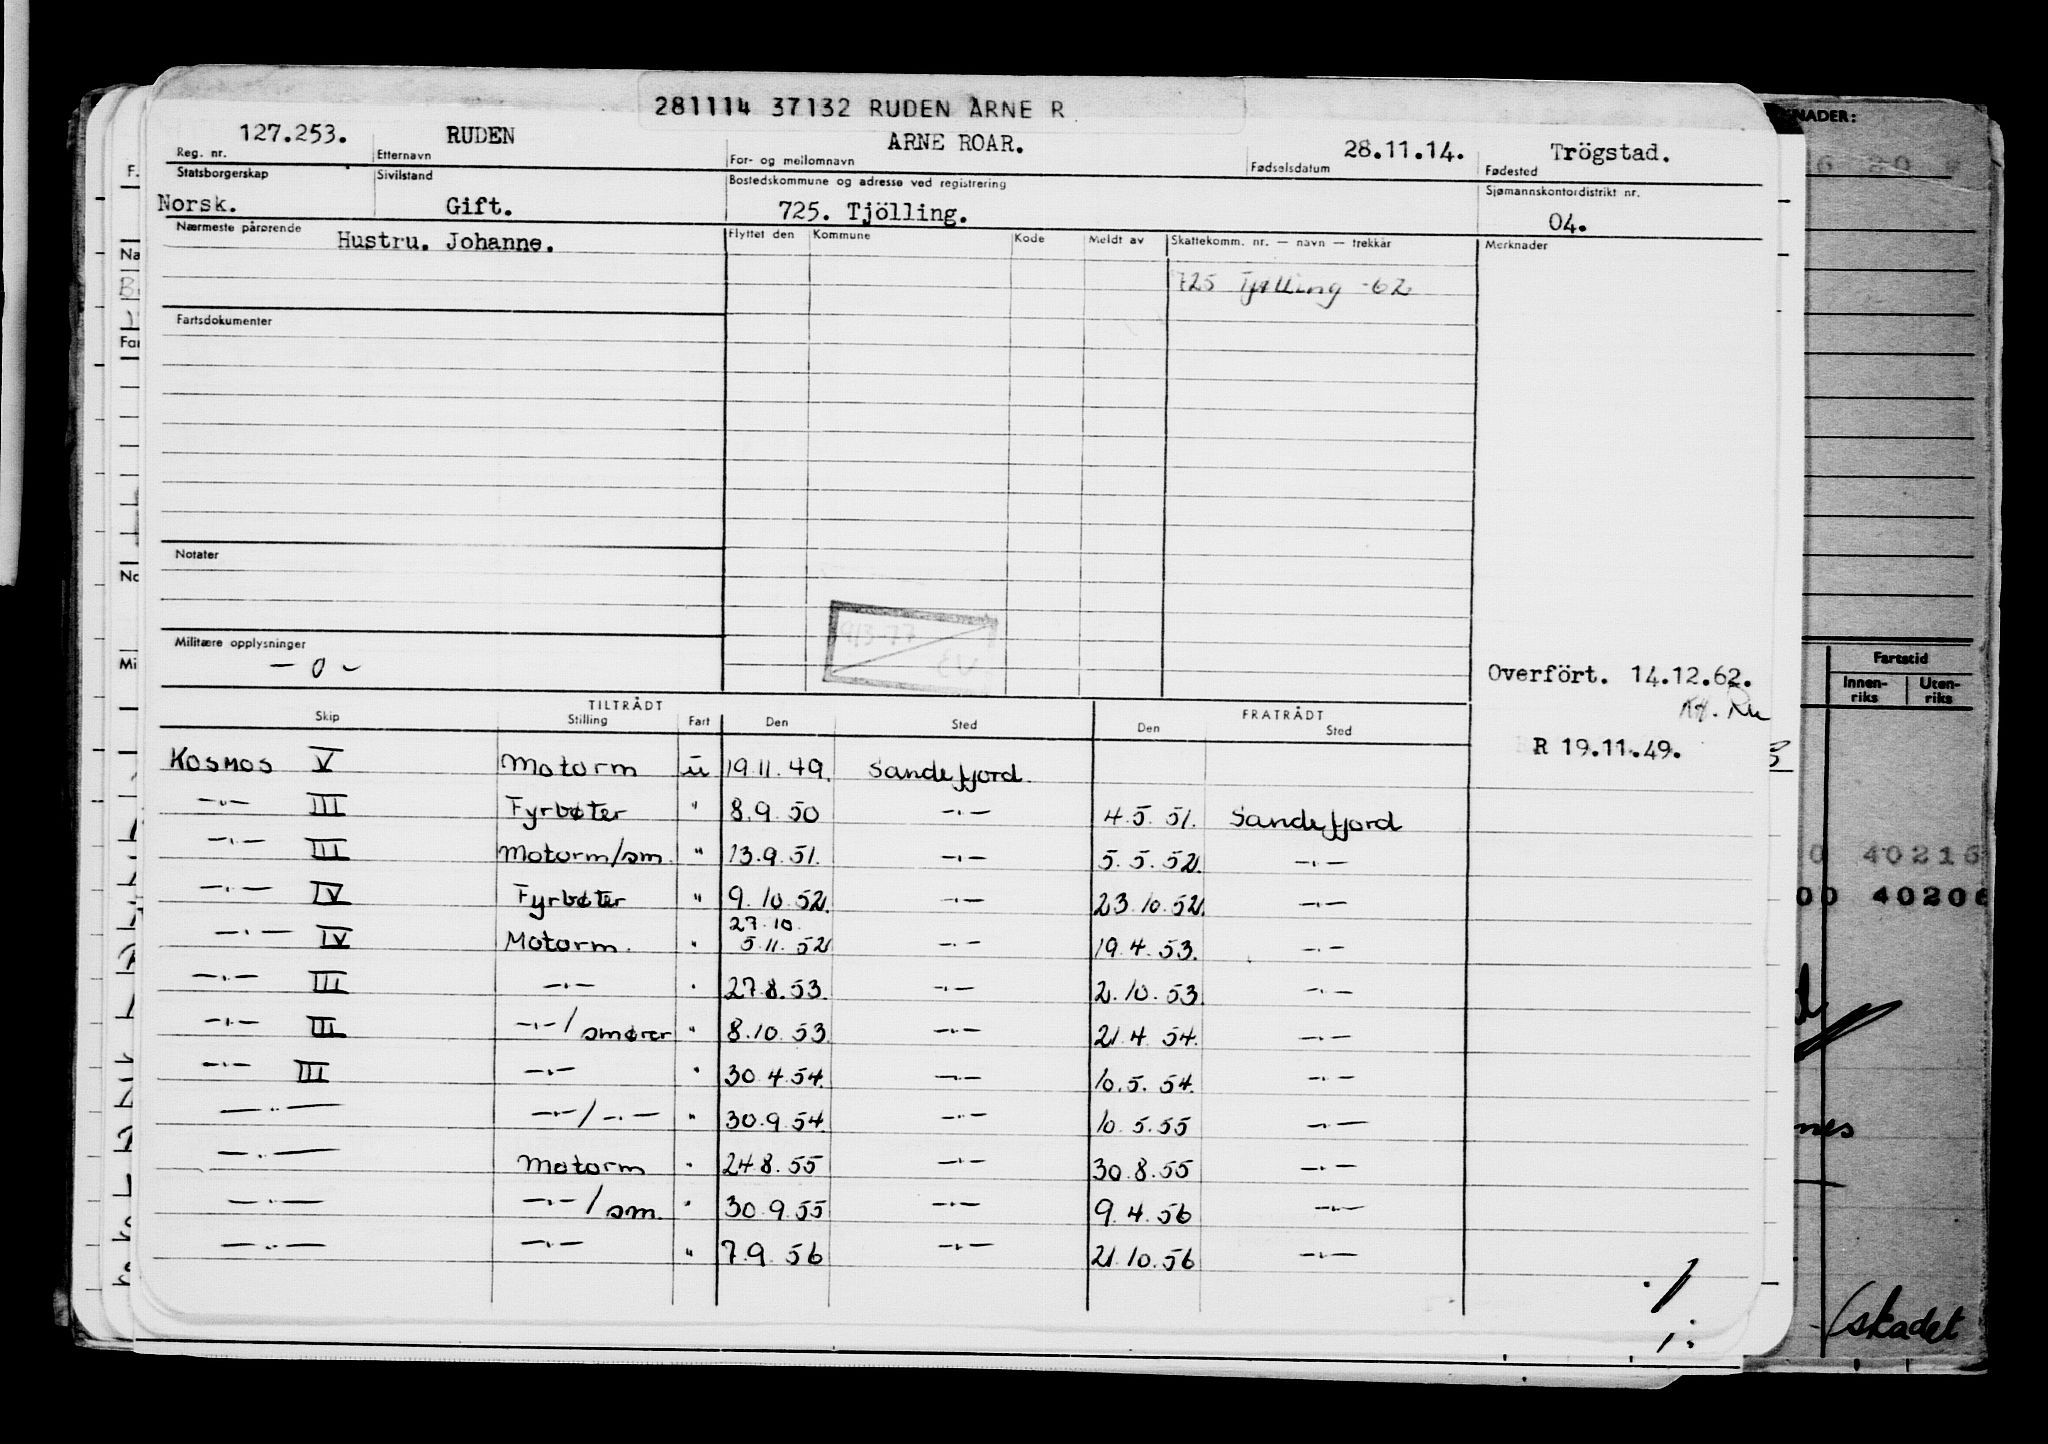 281114 37132 RUDEN ARNE R
127.253. RUDEN ARNE ROAR. 28.11.14. Trögstad.
Reg. nr. Etternavn For- og mellomnavn Fødselsdatum Fødested
Statsborgerskap Sivilstand Bostedskommune og adresse ved registrering Sjømannskontordistrikt nr.
Norsk. Gift. 725. Tjölling. 04.
Nærmeste pårørende Hustru. Johanne. Flyttet den Kommune Kode Meldt av Skattekomm. nr. — navn — trekkår Merknader
725 Tjølling -62
Fartsdokumenter
Notater
Militære opplysninger
— 0 —
Overfört. 14.12.62.
R 19.11.49.
TILTRÅDT FRATRÅDT
Skip Stilling Fart Den Sted Den Sted
KOSMOS V Motorm u 19.11.49. Sandefjord
—"— III Fyrbøter " 8.9.50 —"— 4.5.51. Sandefjord
—"— III Motorm/sm. " 13.9.51. —"— 5.5.52. —"—
—"— IV Fyrbøter " 9.10.52. —"— 23.10.52. —"—
27.10.
—"— IV Motorm. " 5.11.52 —"— 19.4.53. —"—
—"— III —"— " 27.8.53. —"— 2.10.53 —"—
—"— III —"—/smører " 8.10.53 —"— 21.4.54. —"—
—"— III —"— " 30.4.54. —"— 10.5.54. —"—
—"— —"—/—"— " 30.9.54. —"— 10.5.55 —"—
—"— Motorm " 24.8.55 —"— 30.8.55 —"—
—"— —"—/sm. " 30.9.55 —"— 9.4.56 —"—
—"— —"— " 7.9.56 —"— 21.10.56 —"—
NADER:
Fartstid
Innen-
riks
Uten-
riks
40216
00 40206
(skadet